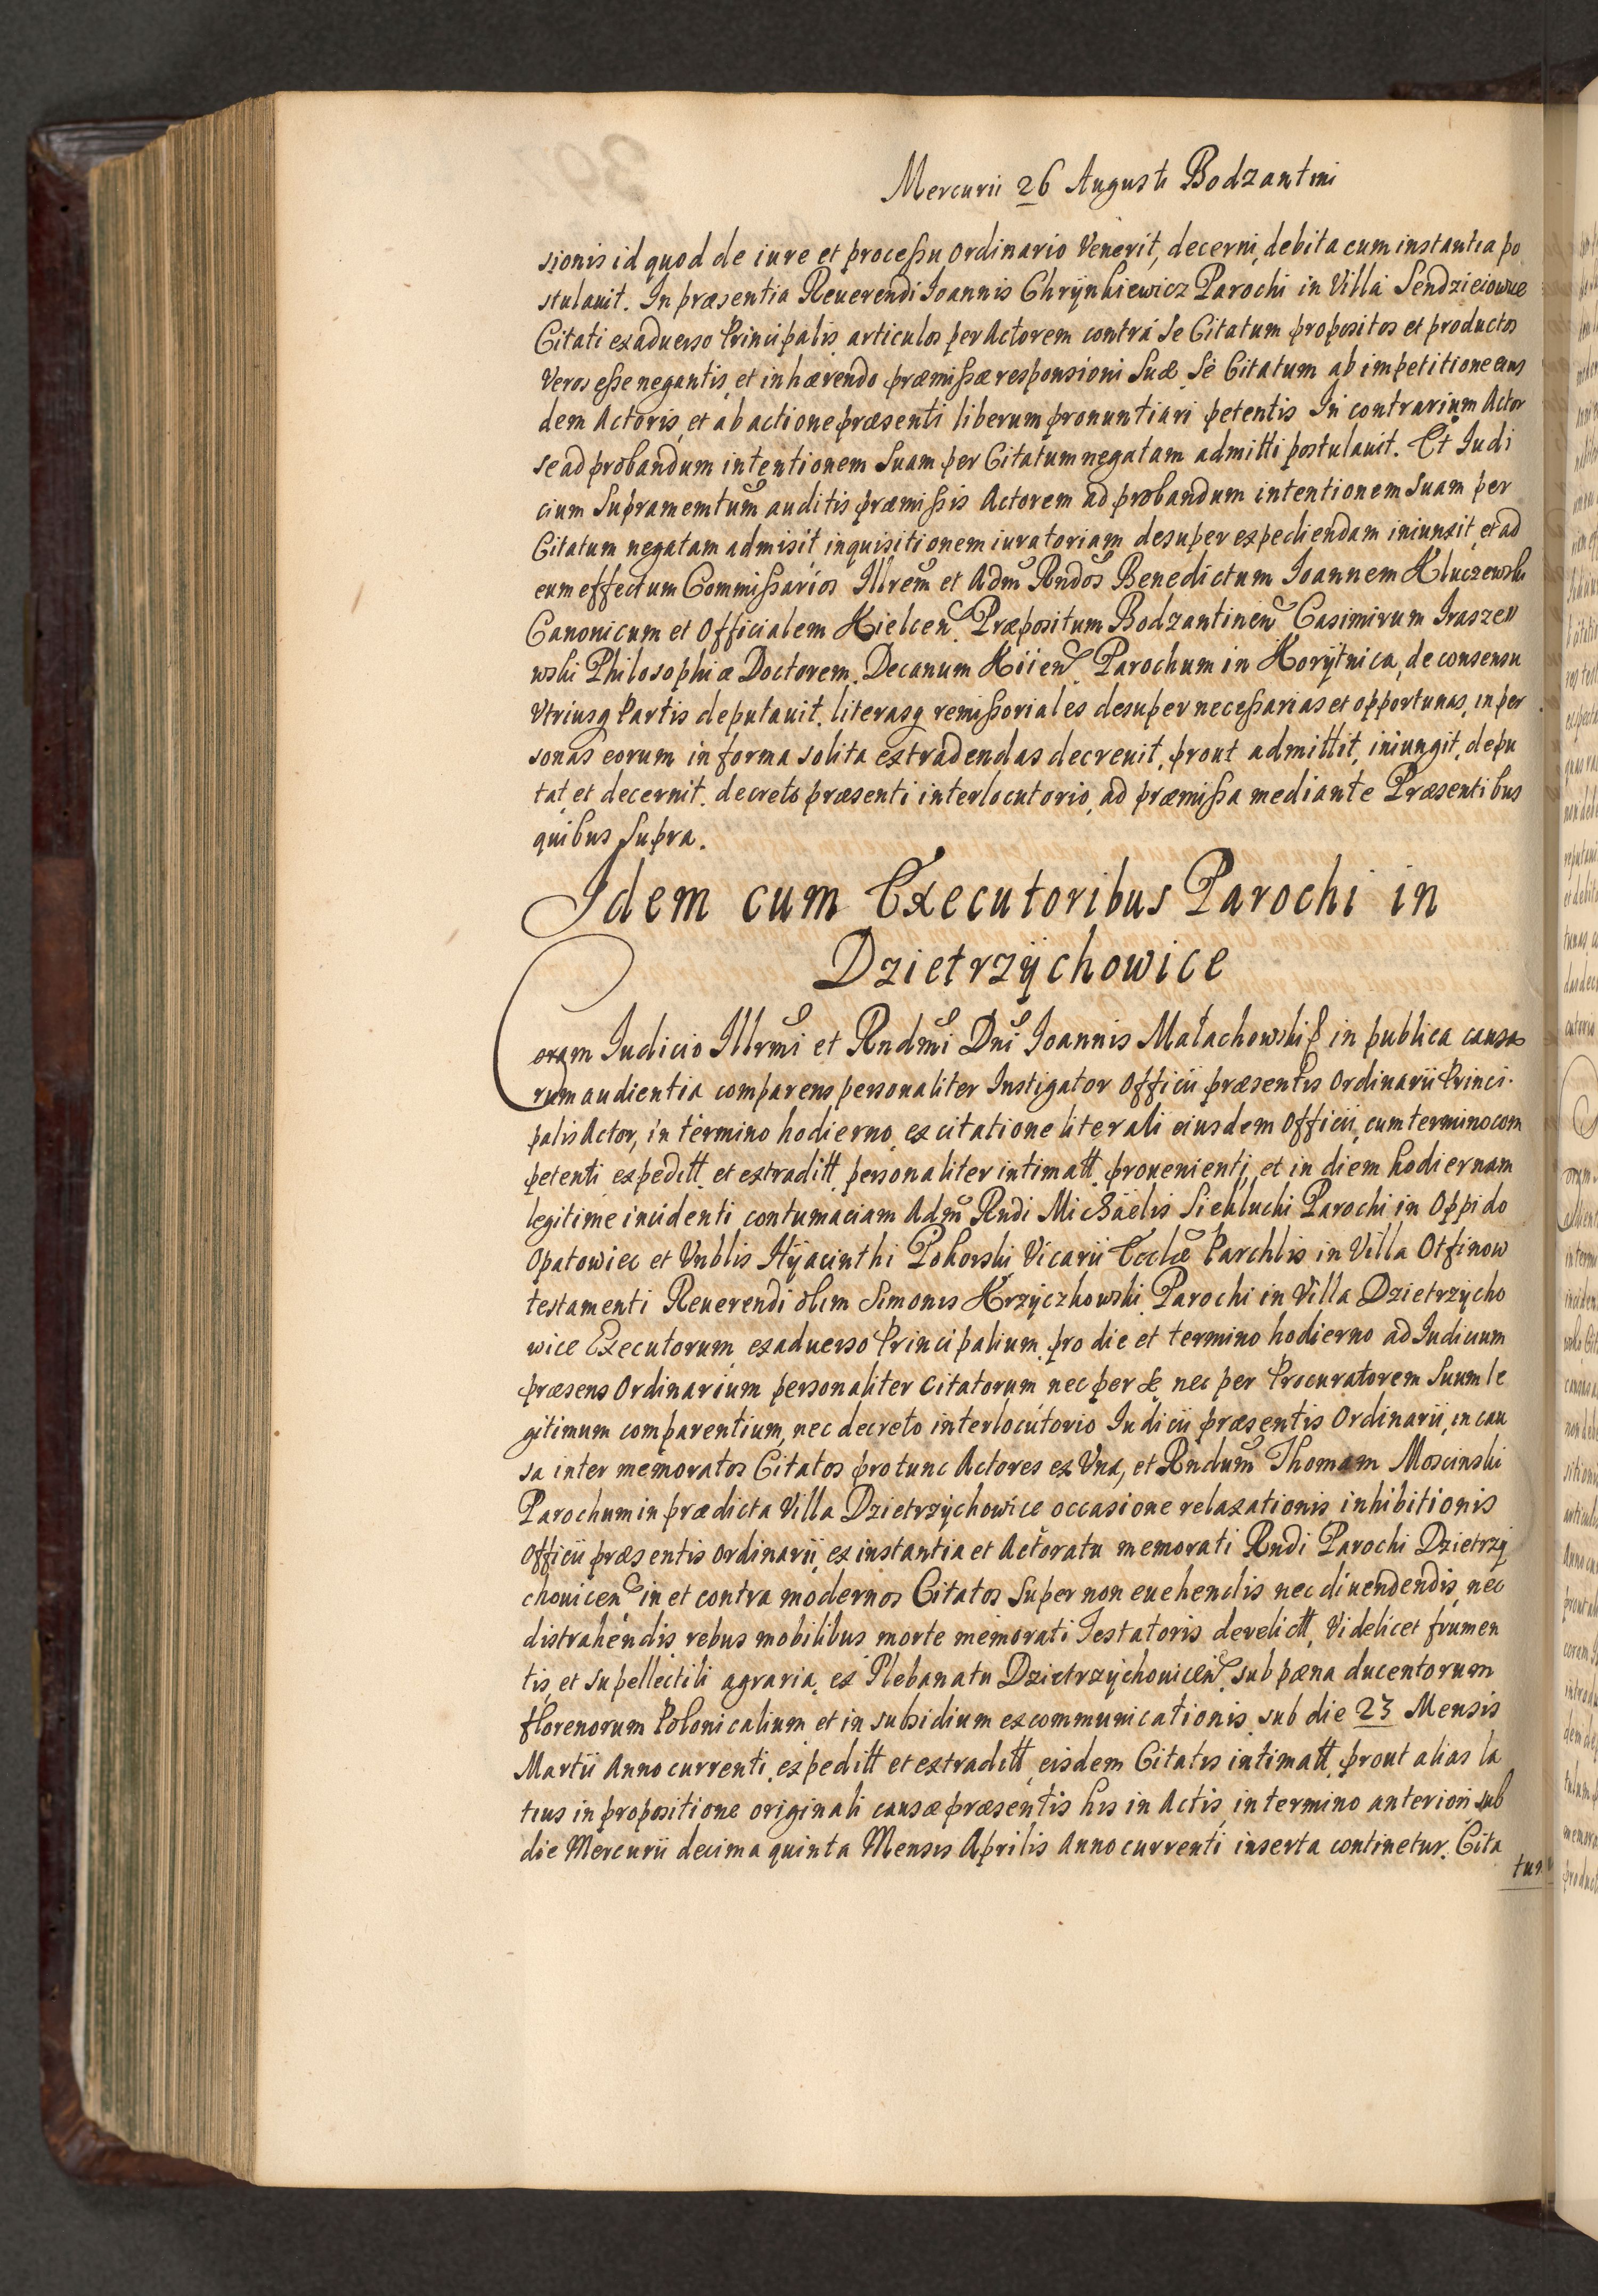 Mercurii 26 Augusti Bodzantini
sionis id quod de iure et processu ordinario Venerit, decerni, debita cum instantia po
stulauit. In præsentia Reuerendi Joannis Chrÿnkiewicz Parochi in Villa Sendzieiowice
Citati ex aduerso Principalis articulos per Actorem contra Se Citatum propositos et productos
Veros esse negantis, et inhærendo præmissæ responsioni Suæ, Se Citatum ab impetitione eius
dem Actoris, et ab actione præsenti liberum pronuntiari petentis In contrarium Actor
se ad probandum intentionem Suam per Citatum negatam admitti postulauit. Et Judi
cium Supramemtum auditis præmissis Actorem ad probandum intentionem suam per
Citatum negatam admisit, inquisitionem iuratoriam desuper expediendam iniunxit, et ad
eum effectum Commissarios Illrem et Adm Rndos Benedictum Joannem Kluczewski
Canonicum et Officialem Kielcen. Præpositum Bodzantinen Casimirum Jraszew
wski Philosophiæ Doctorem, Decanum Kiien Parochum in Korÿtnica, de consensu
Vtriusq Partis deputauit, literasq remissoriales desuper necessarias et opportunas, in per
sonas eorum in forma solita extradendas decreuit, prout admittit, iniungit, depu
tat, et decernit, decreto præsenti interlocutorio, ad præmissa mediante Præsentibus
quibus Supra.
Idem cum Executoribus Parochi in
Dzietrzÿchowice
Coram Judicio Illrmi et Rndmi Dni Joannis Małachowski in publica causa
rum audientia comparens personaliter Instigator Officii præsentis Ordinarii Princi-
palis Actor, in termino hodierno, ex citatione literali eiusdem Officii, cum termino com
petenti expeditt et extraditt personaliter intimatt prouenienti, et in diem hodiernam
legitime incidenti contumaciam Adm Rndi Michaelis Siekluchi Parochi in Oppido
Opatowiec et Vnblis Hÿacinthi Pokorski Vicarii Ecclæ Parchlis in Villa Otfinow
testamenti Reuerendi olim Simonis Krzÿczkowski Parochi in Villa Dzietrzÿcho
wice Executorum, ex aduerso Principalium, pro die et termino hodierno ad Judicium
præsens Ordinarium personaliter citatorum nec per se, nec per Procuratorem Suum le
gitimum comparentium, nec decreto interlocutorio Judicii præsentis Ordinarii, in cau
sa inter memoratos Citatos pro tunc Actores ex Vna, et Rndum Thomam Moscinski
Parochum in prædicta Villa Dzietrzÿchowice occasione relaxationis inhibitionis
Officii præsentis ordinarii, ex instantia et Actoratu memorati Rndi Parochi Dzietrzÿ
chouicen in et contra modernos Citatos Super non euehendis nec diuendendis, nec
distrahendis rebus mobilibus morte memorati Testatoris derelictt, Videlicet frumen
tis, et supellectili agraria, ex Plebanatu Dzietrzÿchouicen, sub pæna ducentorum
florenorum Polonicalium et in subsidium excommunicationis, sub die 23 Mensis
Martii Anno currenti, expeditt et extraditt, eisdem Citatis intimatt, prout alias la
tius in propositione originali causæ præsentis his in Actis, in termino anteriori sub
die Mercurii decima quinta Mensis Aprilis Anno currenti inserta continetur. Cita